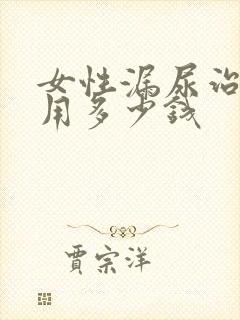 女性漏尿治
用多少钱
贾宗洋